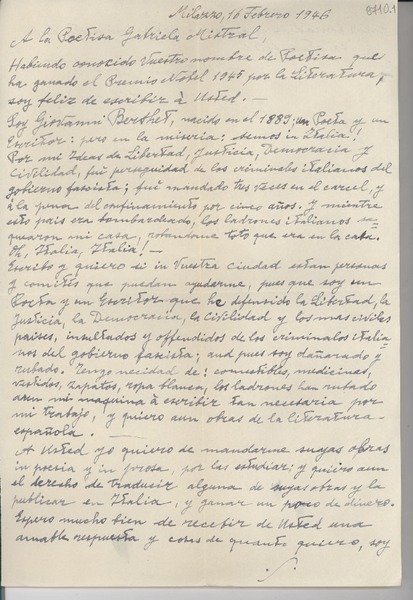 8710.1
Milazzo, 16 Febrero 1946
A la Poetisa Gabriela Mistral,
Habiendo conocido Vuestro nombre de Poetisa que
ha ganado el Premio Nobel 1945 por la Literatura,
soy feliz de escribir à Usted.—
Soy Giovanni Berthet, nacido en el 1889; un Poeta y un
Escritor: pero en la miseria: semos in Italia!
Por mi Ideas de Libertad, Justicia, Democracia y
Civilidad, fuì perseguidad de los criminales italianos del
gobierno fascista; fuì mandado tres veces en el carcel, y
à la pena del confinamiento por cinco años. y mientre
esto pais era bombardeado, los ladrones italianos sa-
quearon mi casa, robandome toto que era en la casa.
Oh, Italia, Italia!—
Escribo y quiero si in Vuestra ciudad estan personas
y comités que puedan ayudarme, pues que soy un
Poeta y un Escritor que he defendido la Libertad, la
Justicia, la Democracia, la Civilidad y los mas civiles
paises, insultados y offendidos de los criminalos italia-
nos del gobierno fascista; and pues soy dañarado y
rubado. Tengo necidad de: comestibles, medicinas,
vestidos, zapatos, ropa blanca, los ladrones han rubado
aun mi maquina à escribir tan necesaria por
mi trabajo, y quiero aun obras de la literatura
española.—
A Usted yo quiero de mandarme suyas obras
in poesia y in prosa, por las estudiar; y quiero aun
el derecho de traducir alguna de suyas obras y la
publicar en Italia, y ganar un poco de dinero.
Espero mucho bien de recebir de Usted una
amable respuesta y cosas de quanto quiero, soy